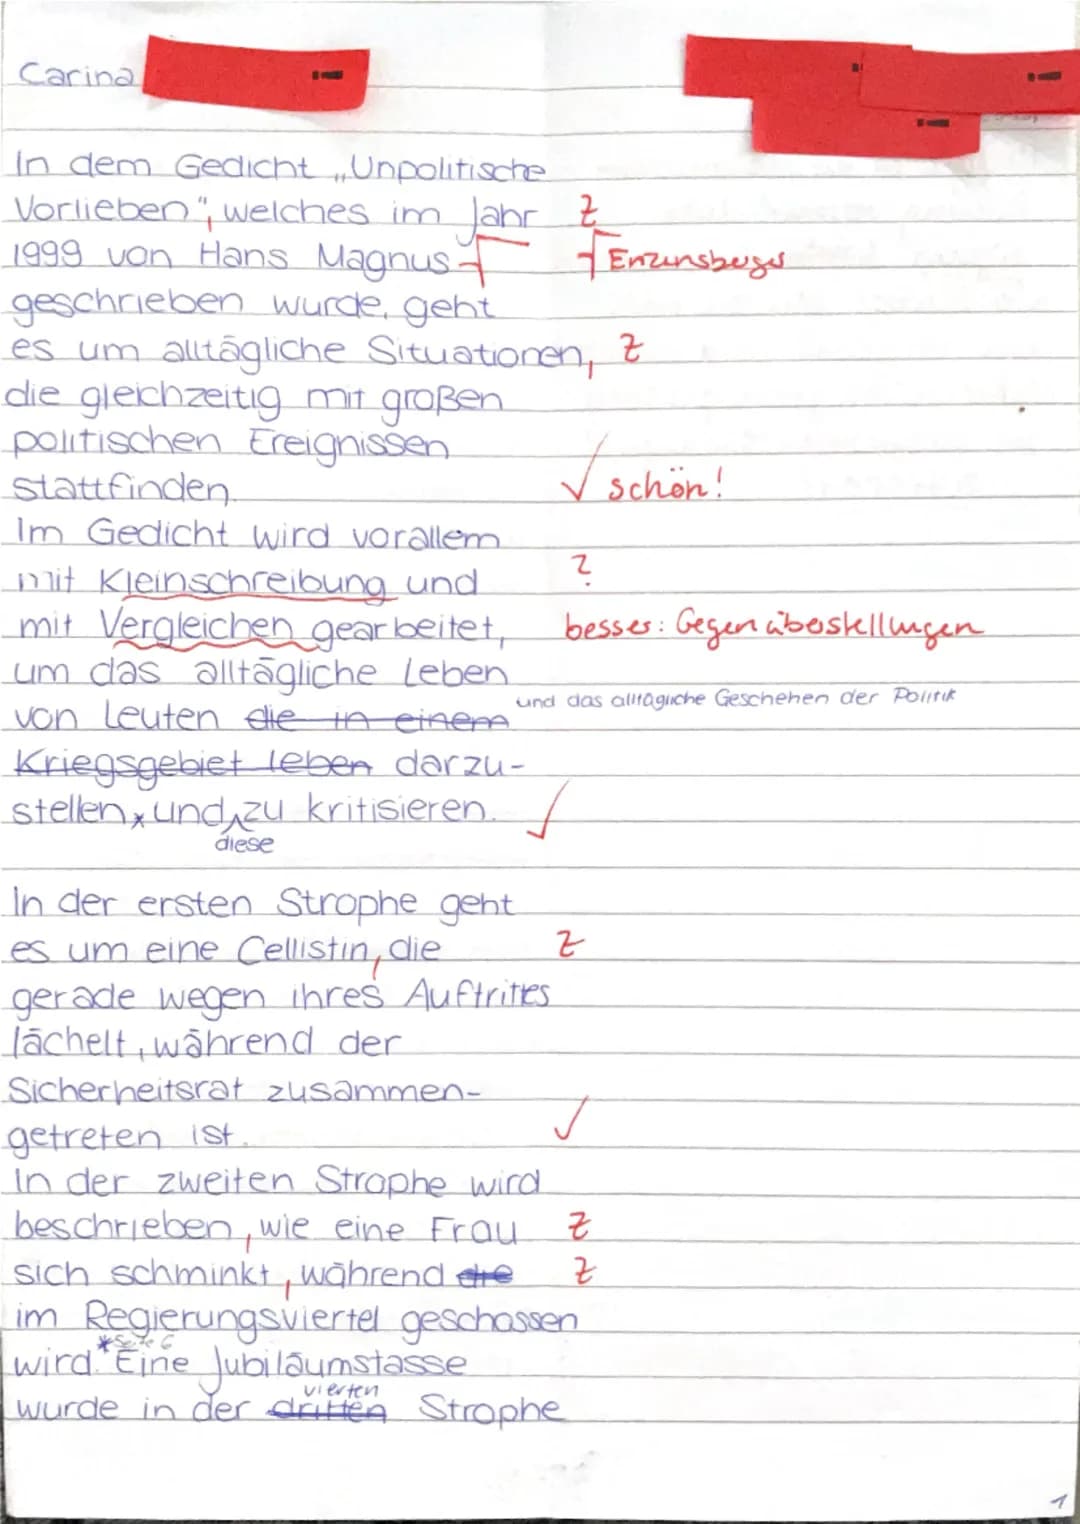 Carina
In dem Gedicht „Unpolitische
Vorlieben", welches im Jahr Z
1999 von Hans Magnus Γ Γ Enzensberger
geschrieben wurde, geht
es um alltägliche Situationen, Z
die gleichzeitig mit großen
politischen Ereignissen
stattfinden. ✓ schön!
Im Gedicht wird vorallem
mit Kleinschreibung und ?
mit Vergleichen gearbeitet, besser: Gegenüberstellungen
um das alltägliche Leben
und das alltägliche Geschehen der Politik
von Leuten die in einem
Kriegsgebiet leben darzu-
stellen x und zu kritisieren. ✓
diese
In der ersten Strophe geht
es um eine Cellistin, die Z
gerade wegen ihres Auftrittes
lächelt, während der
Sicherheitsrat zusammen-
getreten ist. ✓
In der zweiten Strophe wird
beschrieben, wie eine Frau Z
sich schminkt, während die Z
im Regierungsviertel geschossen
wird. *Seite 6 Eine Jubiläumstasse
vierten
wurde in der dritten Strophe
1